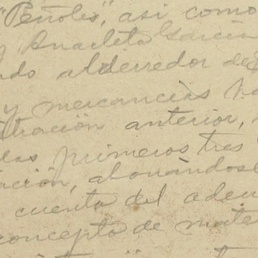 "Peñoles", así como
y Anacleto García
ndo alderredor de
y mercancías pa
tración anterior,
las primeros tres
tación, abonándose
cuenta del adeu
concepto de mate